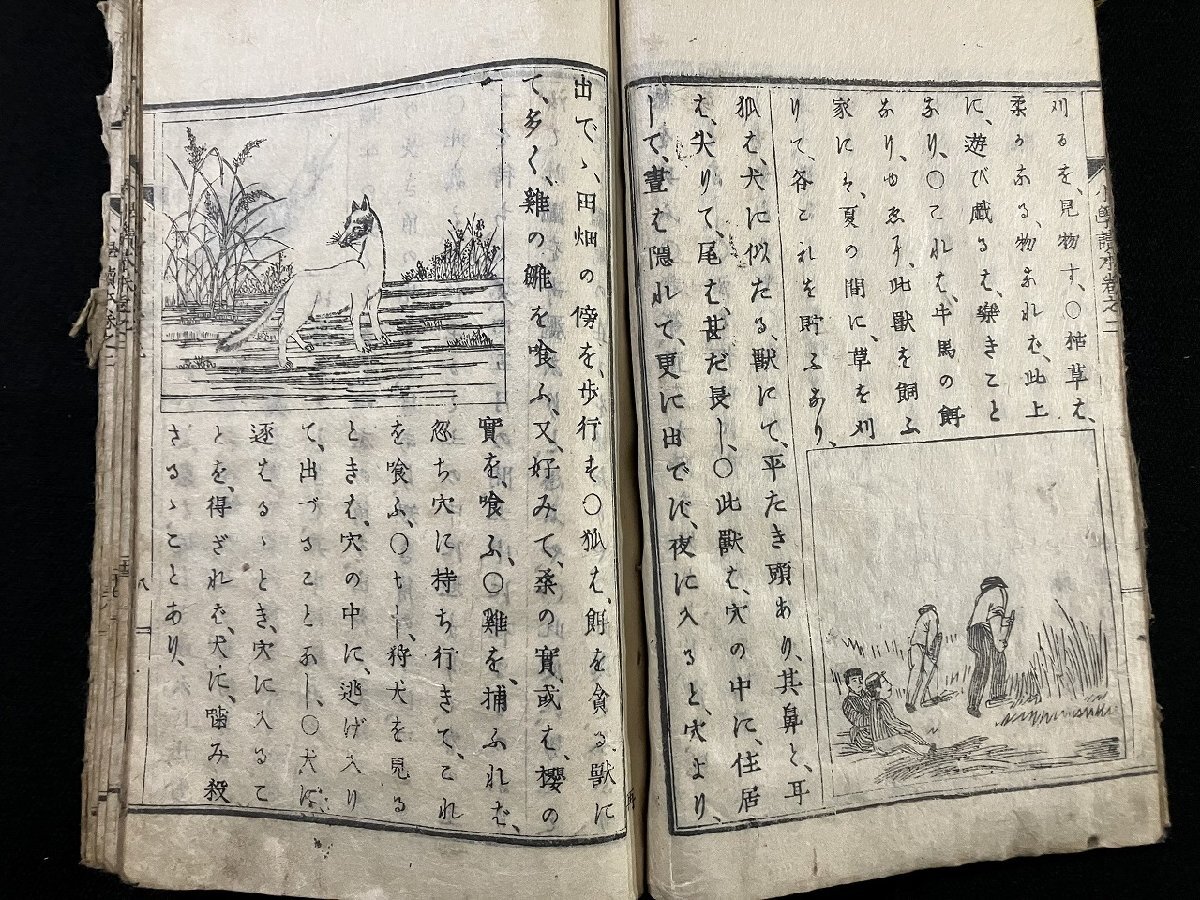 刈るを、見物す、〇枯草は、
柔かなる、物なれば、此上
に、遊び戯るは、樂きこと
なり、〇これは、牛馬の餌
なり、ゆゑに、此獸を飼ふ
家にハ、夏の間に、草を刈
りて、各これを貯ふなり、
狐は、犬に似たる、獸にて、平たき頭あり、其鼻と、耳
は、尖りて、尾は、甚だ長し、〇此獸は、穴の中に、住居
して、晝は隱れて、更に出でず、夜に入ると、穴より、
小學讀本卷之二
出でゝ、田畑の傍を、歩行す〇狐は、餌を貪る、獸に
て、多く雞の雛を喰ふ、又、好みて、桑の實、或は、櫻の
實を、喰ふ、〇雞を、捕ふれば、
忽ち穴に持ち行きて、これ
を喰ふ、〇もし、狩犬を見る
ときは、穴の中に、逃げ入り
て、出づることなし、〇犬に
逐はるゝとき、穴に入るこ
とを、得ざれば、犬に、噛み殺
さるゝことあり、
八